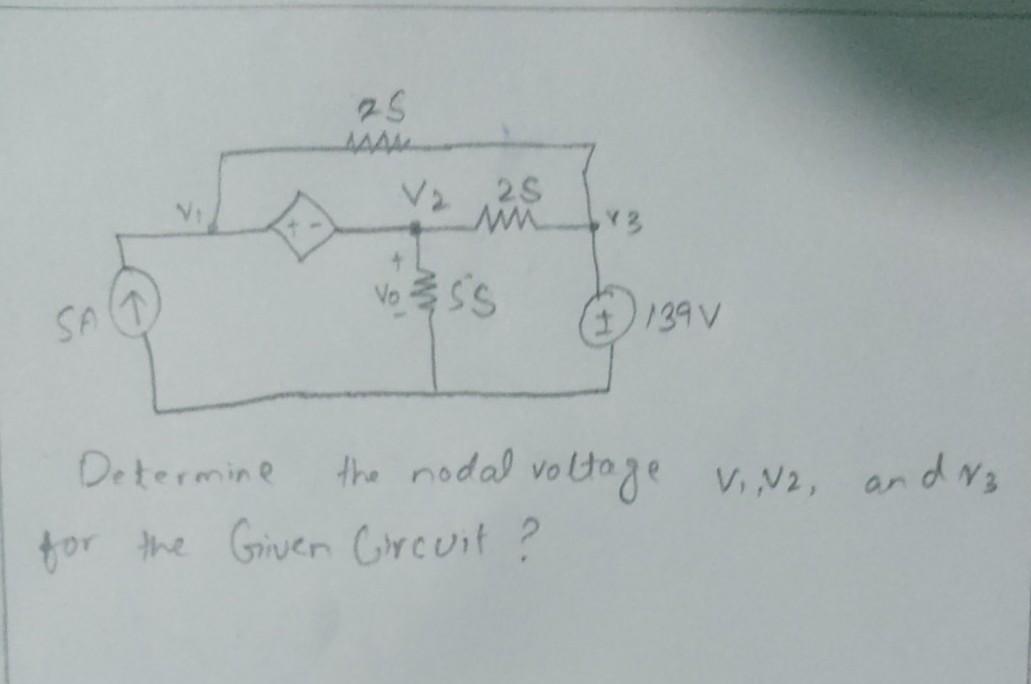 2S
V1
V2
2S
V3
+ -
+
Vo
-
5S
5A
±
139V
Determine the nodal voltage V1, V2, and V3
for the Given Circuit ?